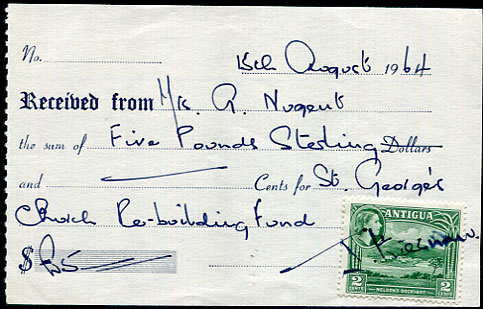 No. 15th August 1964
Received from Mrs. G. Nugent
the sum of Five Pounds Sterling Dollars
and Cents for St. George's
Church Re-building Fund
$ £5
ANTIGUA
2 CENTS NELSON'S DOCKYARD 2 CENTS